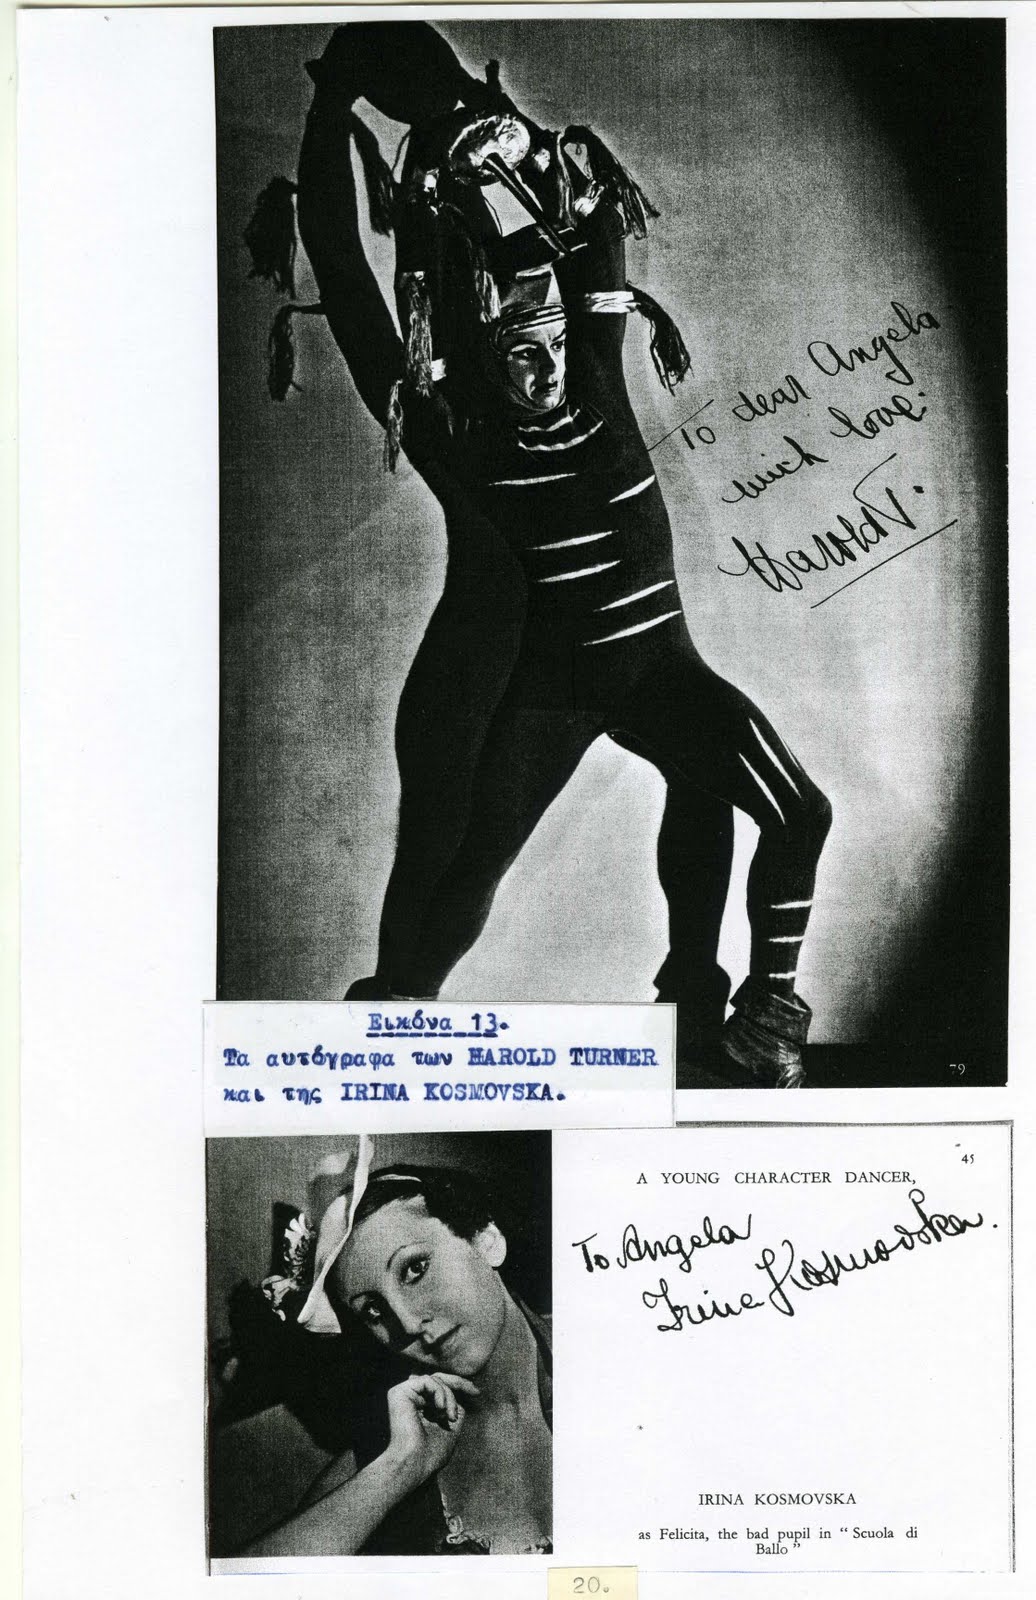 To dear Angela
with love.
Harold T.
79
Εικόνα 13.
Τα αυτόγραφα των HAROLD TURNER
και της IRINA KOSMOVSKA.
45
A YOUNG CHARACTER DANCER,
To Angela
Irina Kosmovska.
IRINA KOSMOVSKA
as Felicita, the bad pupil in “Scuola di
Ballo”
20.